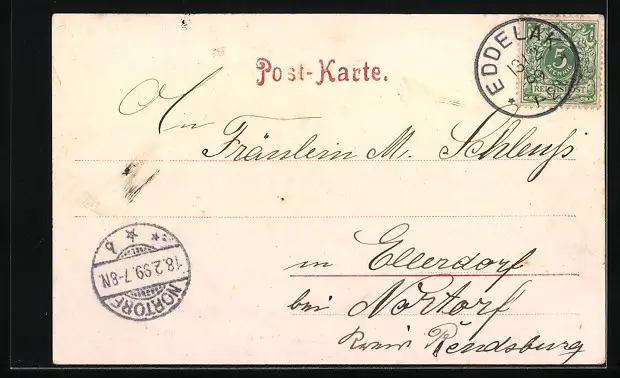 Post-Karte.
EDDELAK
5
PFENNIG
REICHSPOST
An
Fräulein M. Schleuß
in Ellerdorf
bei Nortorf
Kreis Rendsburg
NORTORF
18.2.99.7-8N.